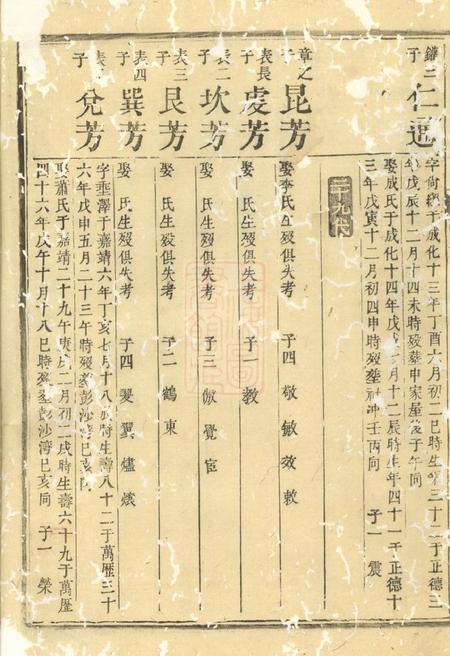 鏵二子
仁通
字尚 于成化十三年丁酉六月初二巳時生 三十二于正德三
年戊辰十二月十四未時殁葬申家屋後子午向
娶成氏于成化十四年戊戌 月十二辰時生年四十一于正德十
三年戊寅十二月初四申時殁葬社冲壬丙向 子一 震
二十九世
章之子
昆芳
娶李氏生殁俱失考 子四 敬 敏 效 敕
表長子
虔芳
娶 氏生殁俱失考 子一 教
表二子
坎芳
娶 氏生殁俱失考 子三 倣 覺 宦
表三子
艮芳
娶 氏生殁俱失考 子二 鶴 東
表四子
巽芳
娶 氏生殁俱失考 子四 爕 翼 爐
表 子
兌芳
字垂澤于嘉靖六年丁亥七月十八 時生壽八十二于萬歷三十
六年戊申五月二十三午時殁葬彭沙灣巳亥向
娶蕭氏于嘉靖二十九年庚戌二月初二戌時生壽六十九于萬歷
四十六年戊午十月十八巳時殁葬彭沙灣巳亥向 子一 榮